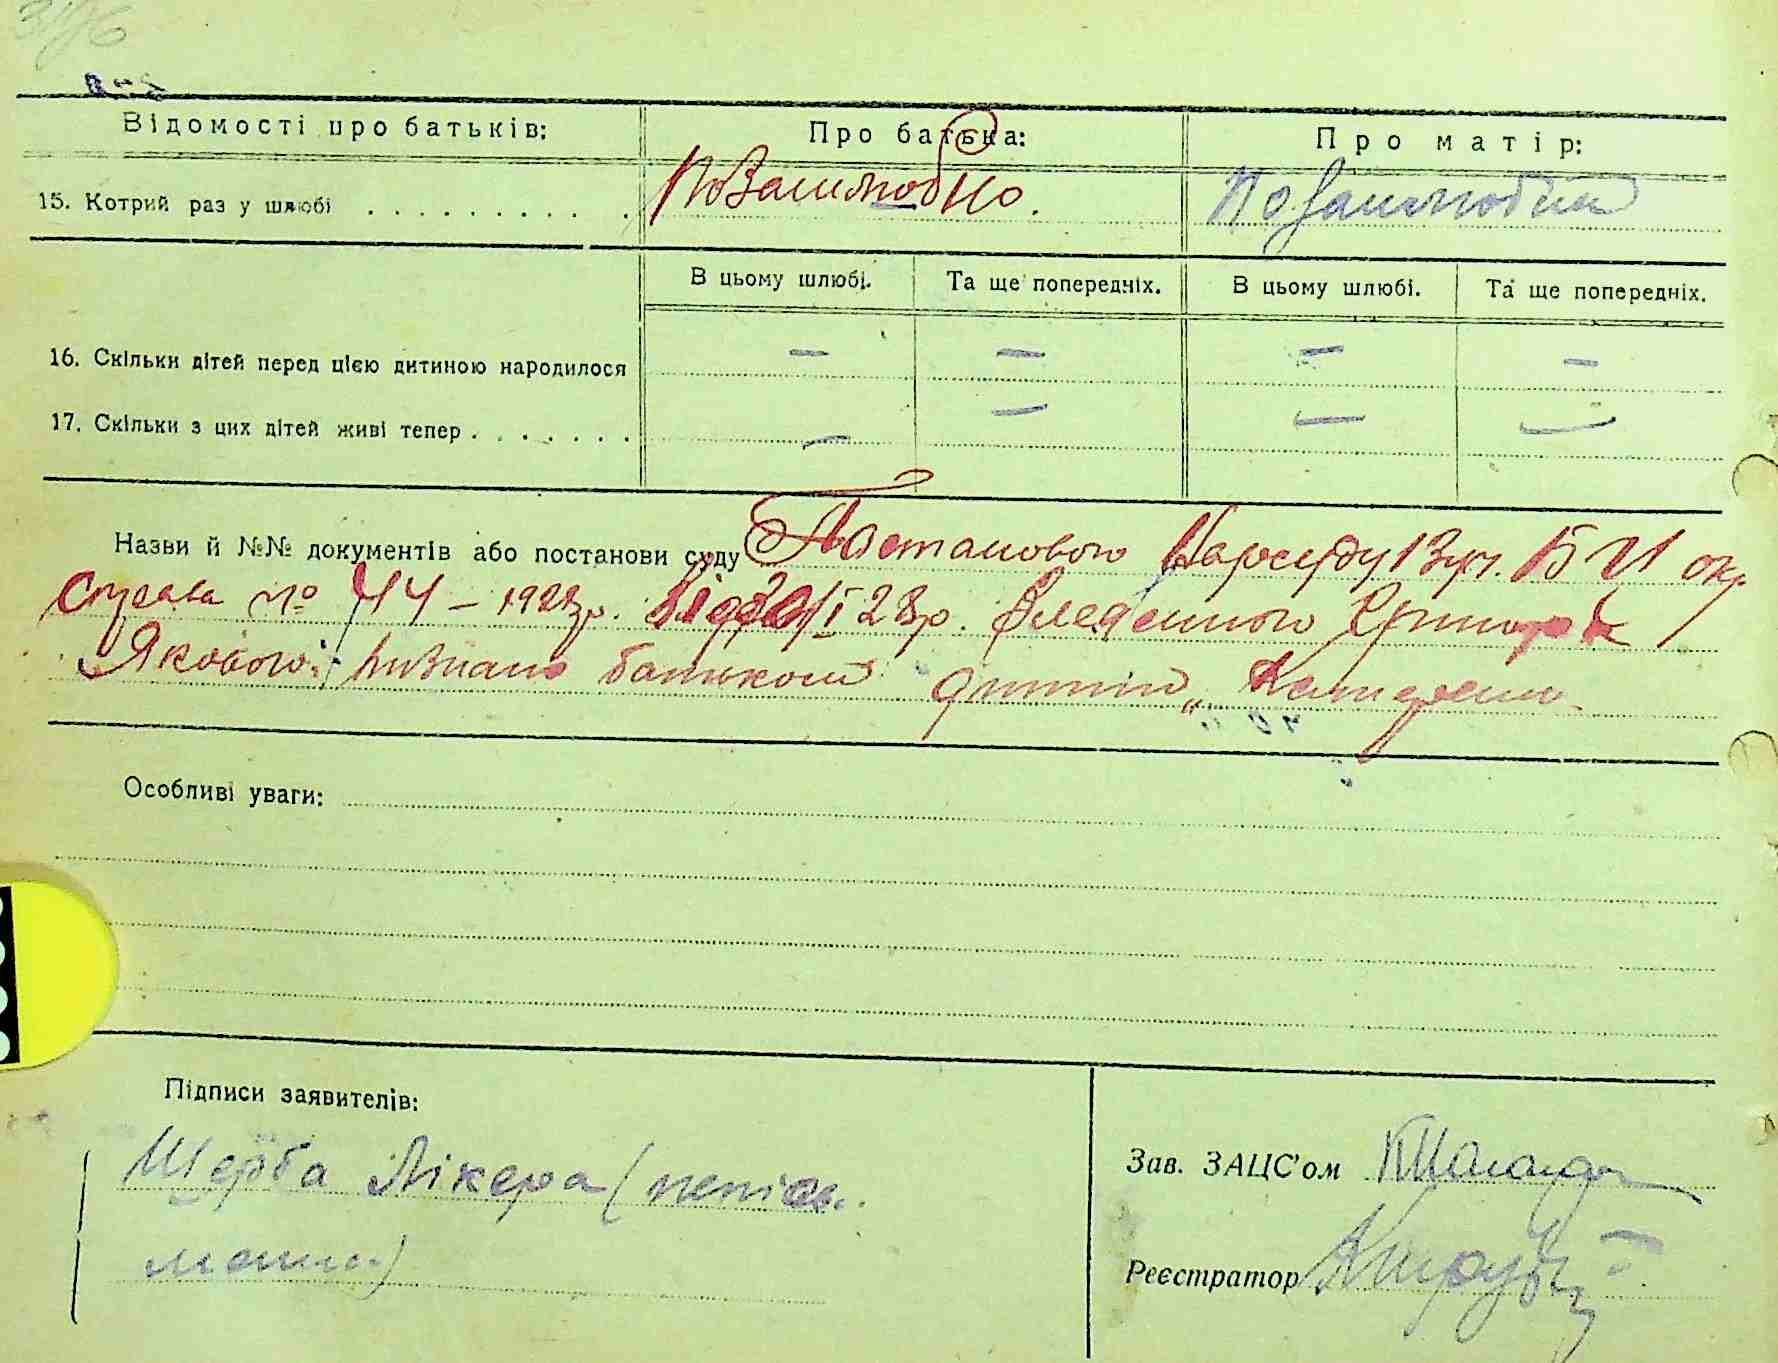 Відомості про батьків:
Про батька:
Про матір:
15. Котрий раз у шлюбі . . . . . . . . . .
Позашлюбно.
Позашлюбни
В цьому шлюбі.
Та ще попередніх.
В цьому шлюбі.
Та ще попередніх.
16. Скільки дітей перед цією дитиною народилося
— — — —
17. Скільки з цих дітей живі тепер . . . . . . .
— — — —
Назви й №№ документів або постанови суду Постановою Нарсуду 13 уч. окр
Справа № 44 – 1928р. Від 30/I 28р.
Якового визнано батьком дитини „Катерини
Особливі уваги:
Підписи заявителів:
Щерба Лікера (непись
менна)
Зав. ЗАЦС'ом
Реєстратор